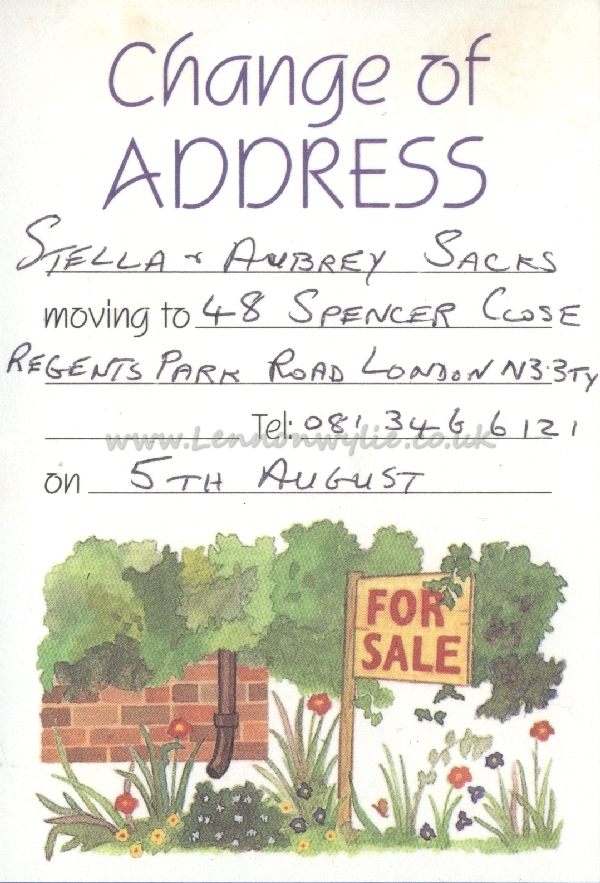 Change of
ADDRESS
STELLA & AUBREY SACKS
moving to 48 SPENCER CLOSE
REGENTS PARK ROAD LONDON N3.3TY
Tel: 081 346 6121
www.Lennonwylie.co.uk
on 5TH AUGUST
FOR
SALE